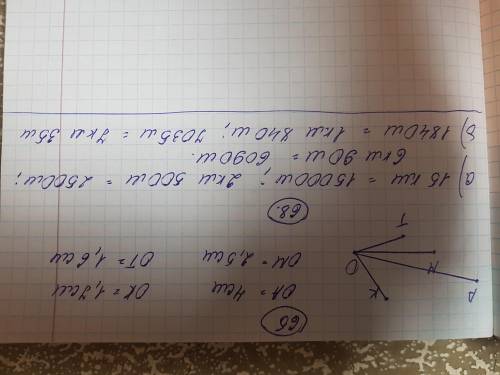 66
OA = 4см OK = 1,7см
OM = 2,5см OT = 1,6см
K
A
O
M
T
68.
а) 15 км = 15000м; 2км 500м = 2500м;
6км 90м = 6090м.
б) 1840м = 1км 840м; 7035м = 7км 35м